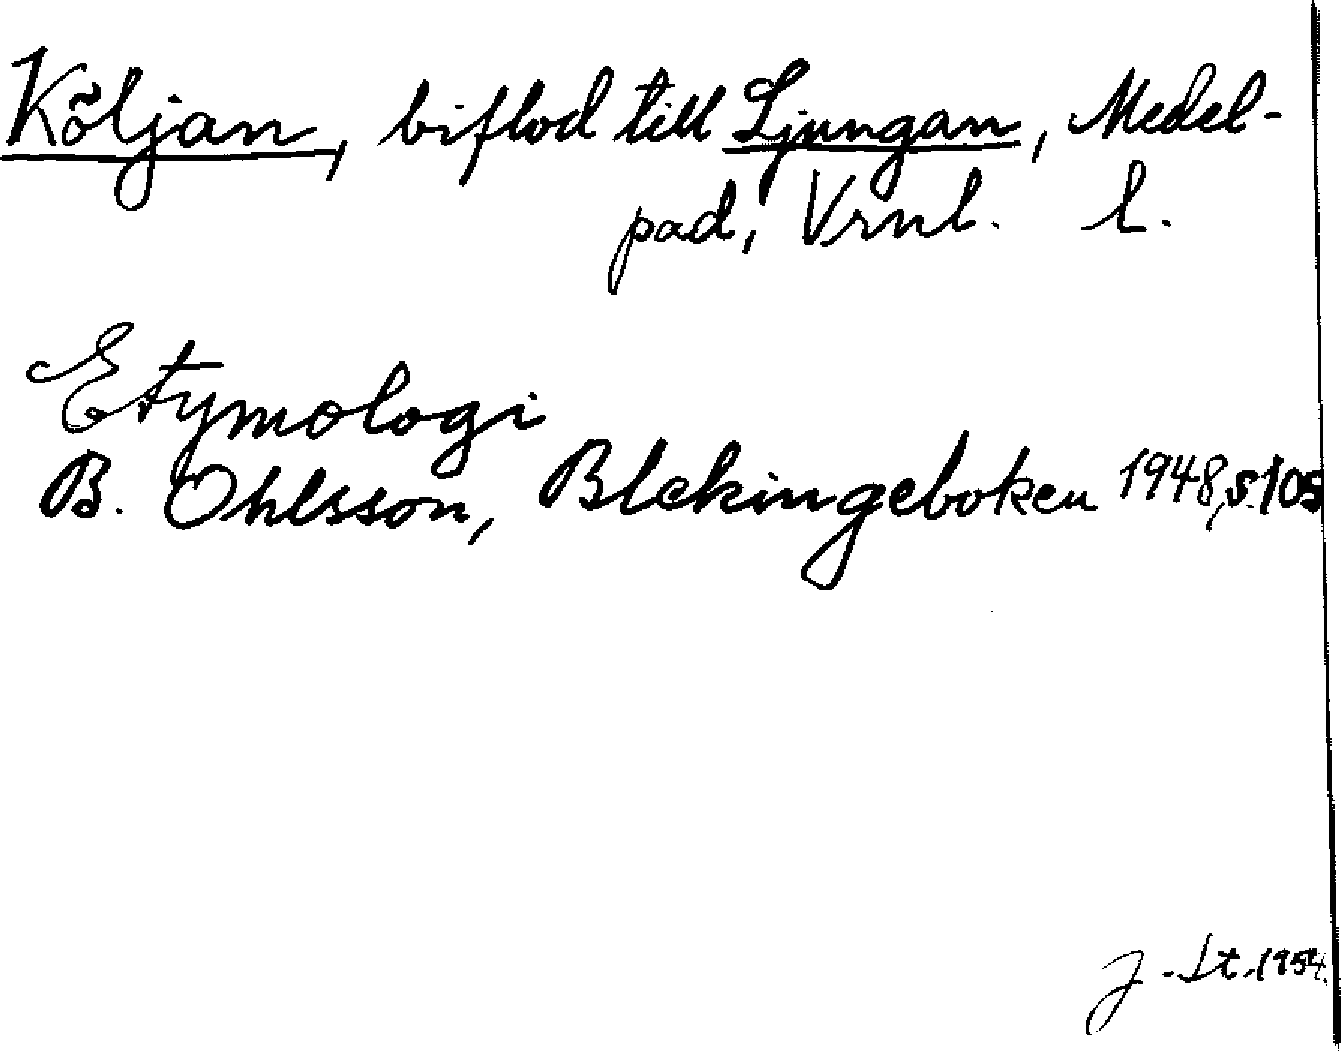 Köljan, biflod till Ljungan, Medel-
pad, Vrnl. l.
Etymologi
B. Ohlsson, Blekingeboken 1948, s. 105
J. St. 1954.